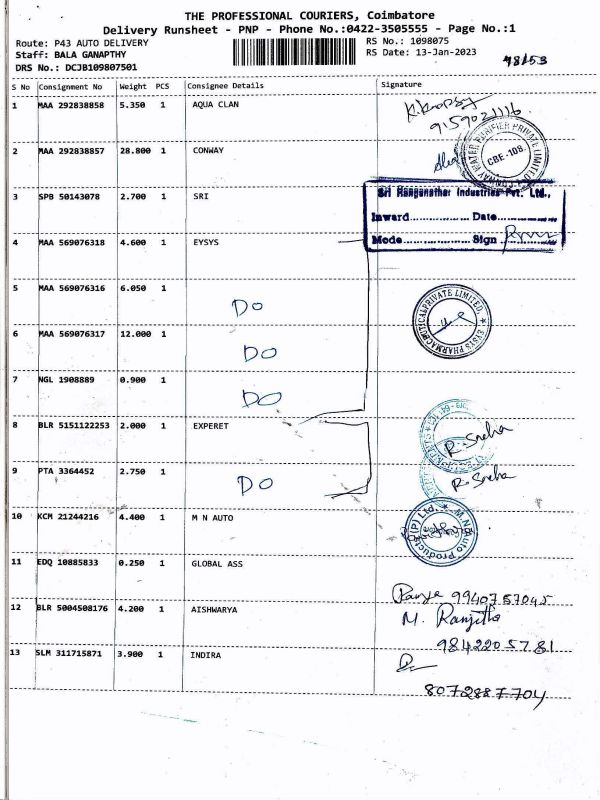 THE PROFESSIONAL COURIERS, Coimbatore
Delivery Runsheet - PNP - Phone No.:0422-3505555 - Page No.:1
Route: P43 AUTO DELIVERY RS No.: 1098075
Staff: BALA GANAPTHY RS Date: 13-Jan-2023
DRS No.: DCJB109807501
S No Consignment No Weight PCS Consignee Details Signature
1 MAA 292838858 5.350 1 AQUA CLAN
9159021116
2 MAA 292838857 28.800 1 CONWAY
WATER PURIFIER PRIVATE LIMITED
CBE-108.
3 SPB 50143078 2.700 1 SRI
Sri Ranganathar Industries Pvt. Ltd.,
Inward................ Date................
Mode................ Sign................
4 MAA 569076318 4.600 1 EYSYS
5 MAA 569076316 6.050 1 DO
EYSYS PHARMACEUTICAL PRIVATE LIMITED.
6 MAA 569076317 12.000 1 DO
7 NGL 1908889 0.900 1 DO
8 BLR 5151122253 2.000 1 EXPERET
R. Sneha
9 PTA 3364452 2.750 1 DO
R. Sneha
10 KCM 21244216 4.400 1 M N AUTO
M.N. Auto Products (P) Ltd.
11 EDQ 10885833 0.250 1 GLOBAL ASS
Ramya 9940757045
12 BLR 5004508176 4.200 1 AISHWARYA
M. Ranjitha
9842205781
13 SLM 311715871 3.900 1 INDIRA
8072887704